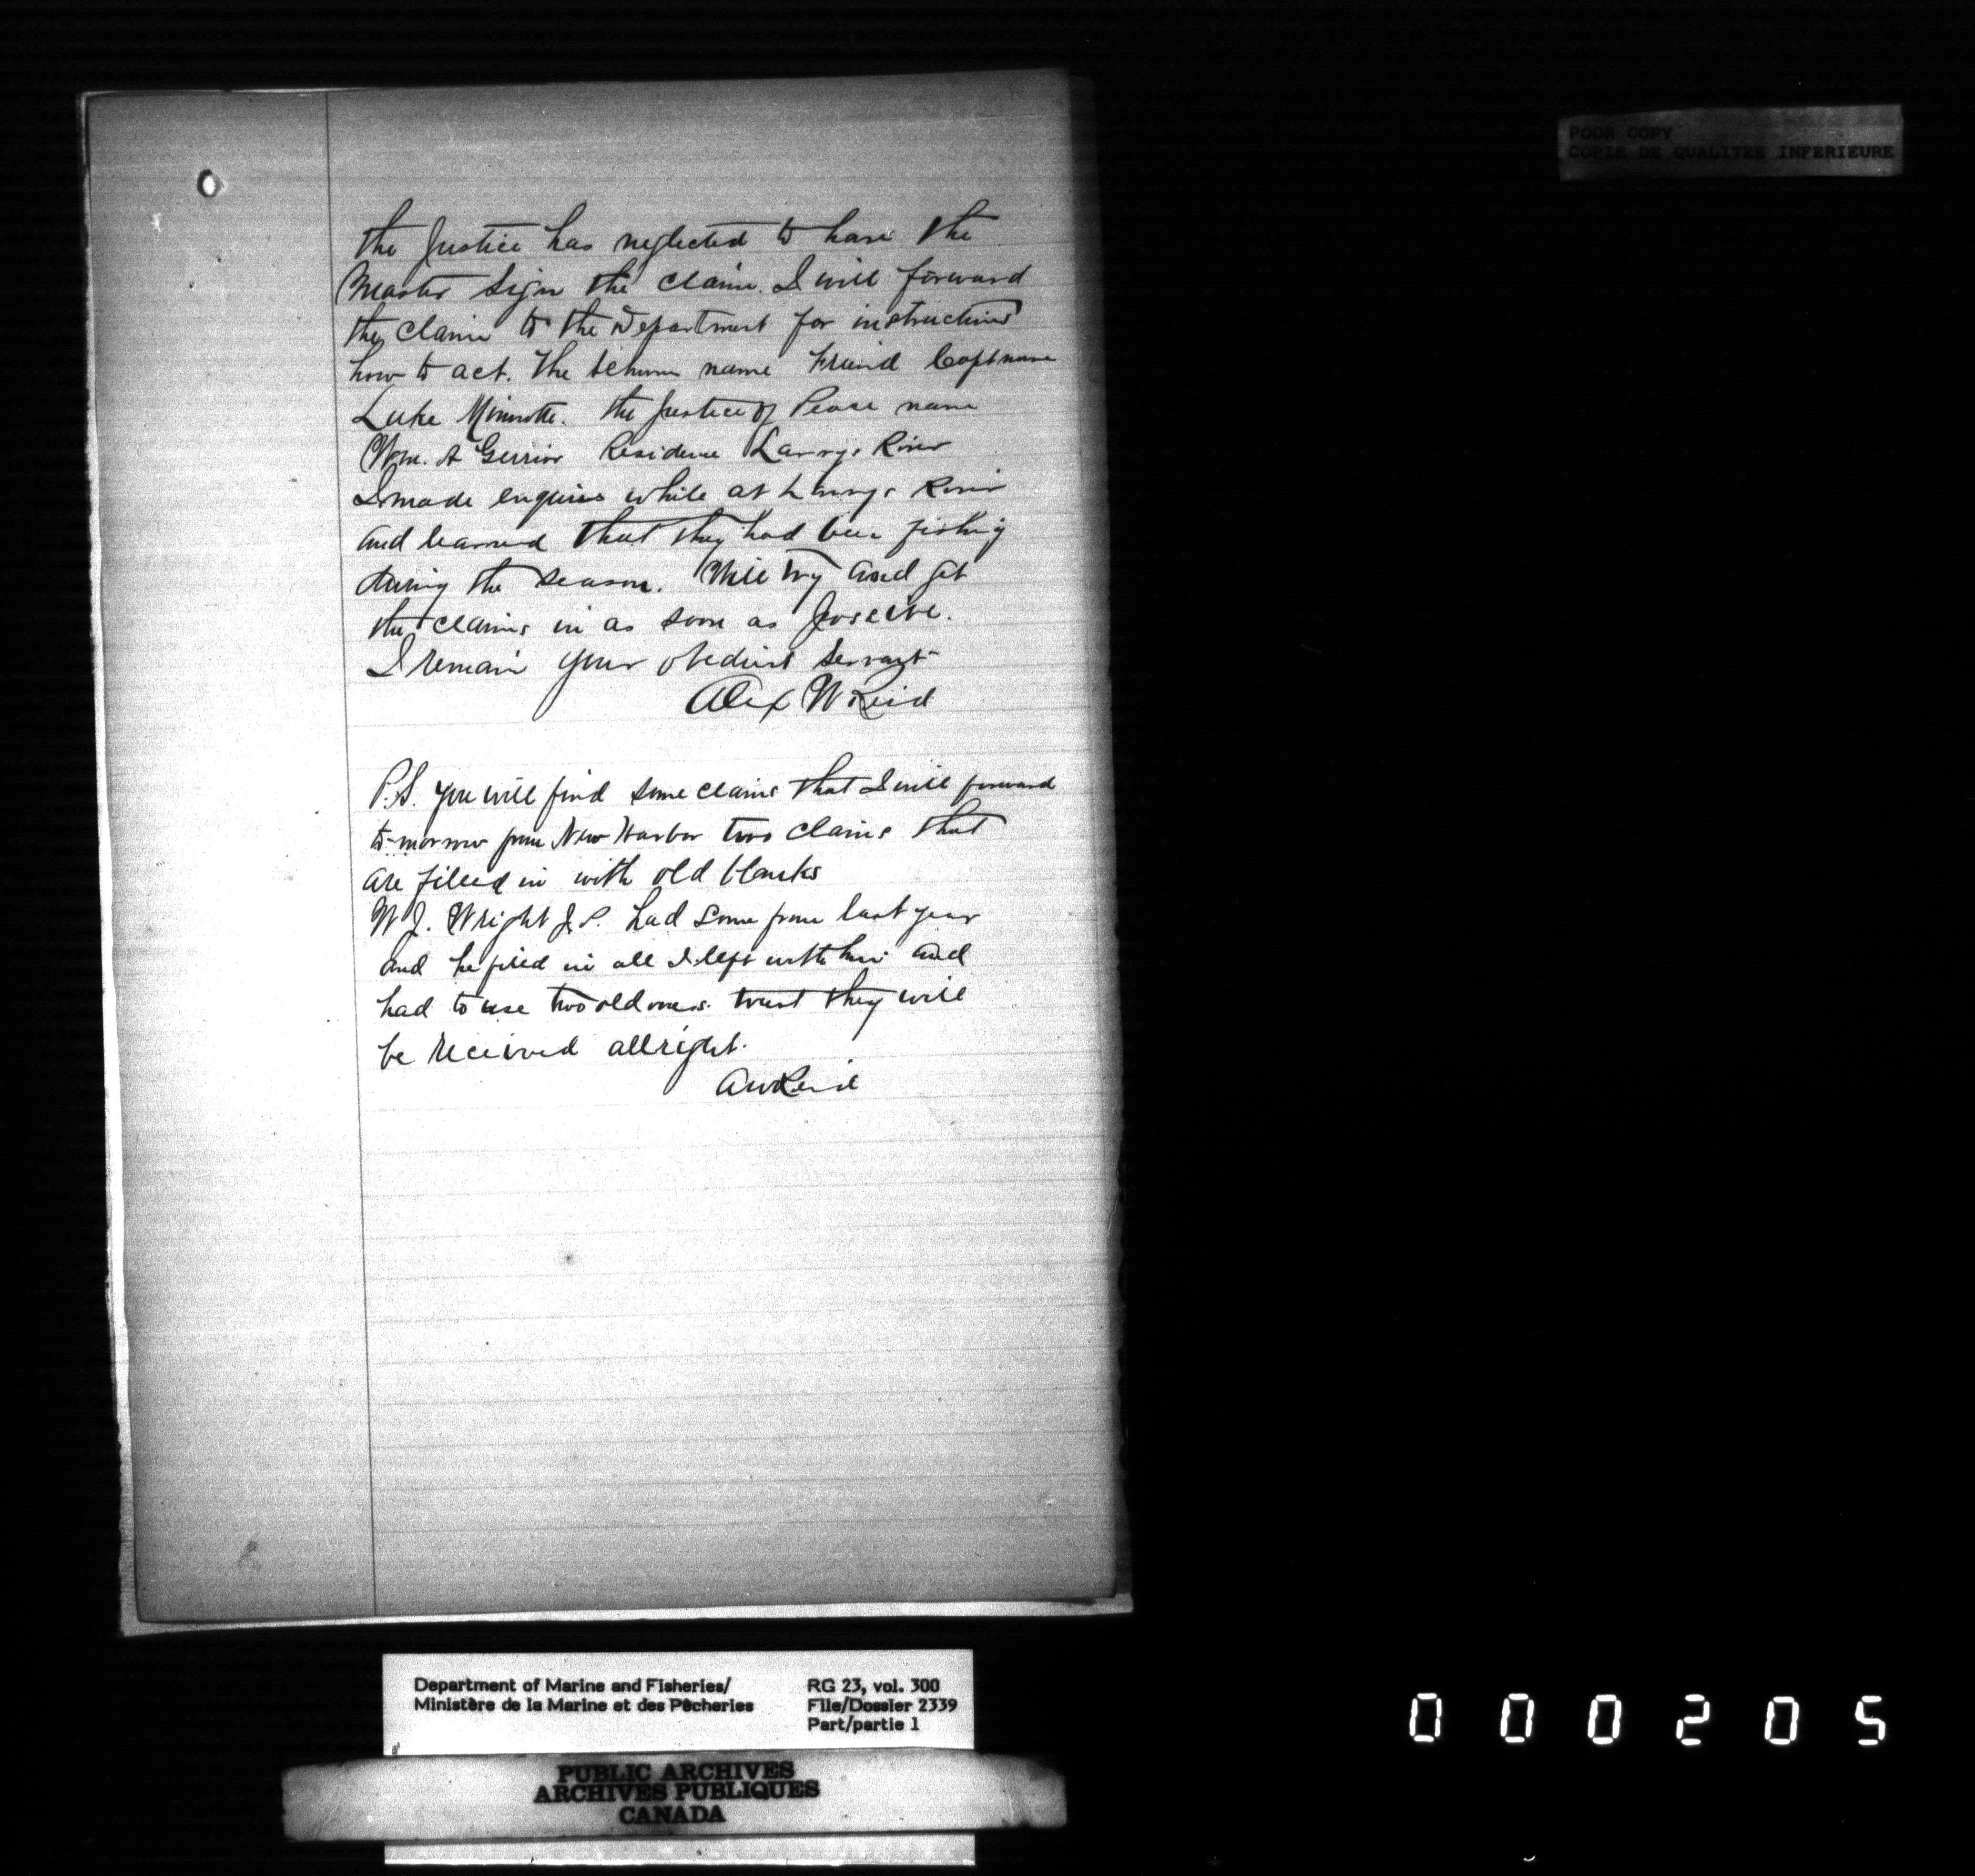 POOR COPY
COPIE DE QUALITEE INFERIEURE
the Justice has neglected to have the
Master sign the claim. I will forward
the claim to the Department for instructions
how to act. The schooner name Friend Capt name
Luke. the Justice of Peace name
Wm. A Gerrior Residence Larrys River
I made enquires while at Larrys River
and learned that they had been fishing
during the season. Will try and get
the claims in as soon as possible.
I remain your obedient servant
Alex W Reid
P.S. you will find some claims that I will forward
to-morrow from New Harbor two claims that
are filled in with old blanks
W J. Wright J.P. had some from last year
and he filed in all I left with him and
had to use two old ones. trust they will
be received allright.
AW Reid
Department of Marine and Fisheries/
Ministère de la Marine et des Pêcheries
RG 23, vol. 300
File/Dossier 2339
Part/partie 1
PUBLIC ARCHIVES
ARCHIVES PUBLIQUES
CANADA
000205